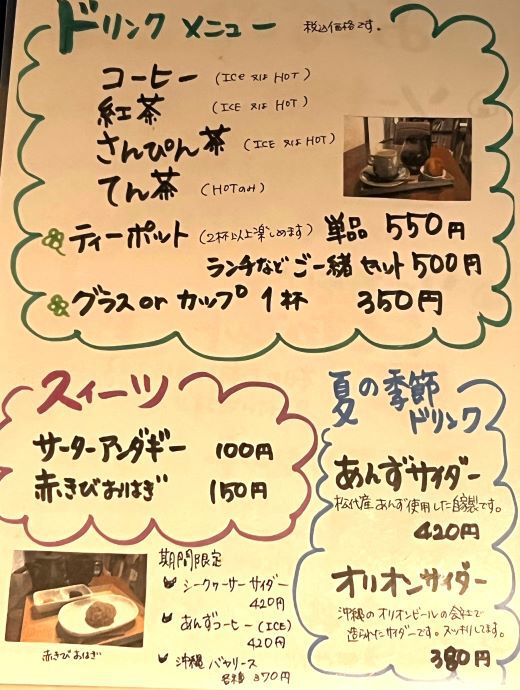 ドリンクメニュー 税込価格です。
コーヒー (ICE 又は HOT)
紅茶 (ICE 又は HOT)
さんぴん茶 (ICE 又は HOT)
てん茶 (HOTのみ)
ティーポット (2杯以上楽しめます) 単品 550円
ランチなどご一緒 セット500円
グラス or カップ 1杯 350円
スィーツ
サーターアンダギー 100円
赤きびおはぎ 150円
夏の季節
ドリンク
あんずサイダー
松代産あんず使用した自家製です。
420円
オリオンサイダー
沖縄のオリオンビールの会社で
造られたサイダーです。スッキリしてます。
380円
期間限定
シークヮーサーサイダー
420円
あんずコーヒー (ICE)
420円
沖縄バヤリース
各種 370円
赤きびおはぎ